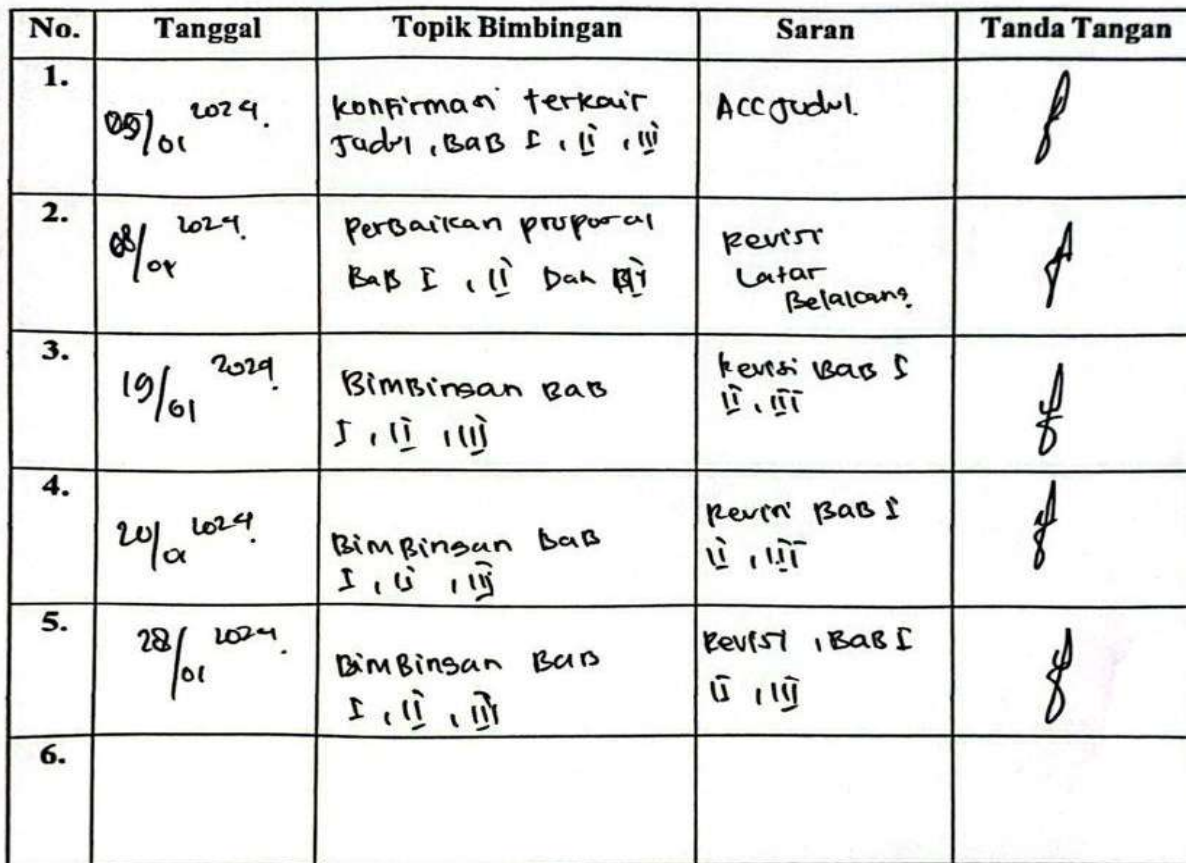 No. Tanggal Topik Bimbingan Saran Tanda Tangan
1.
05/01 2024.
Konfirmasi terkait
Judul, BAB I, II, III
ACC Judul.
2.
08/01 2024.
Perbaikan proposal
BAB I, II Dan III
Revisi
Latar
Belakang.
3.
19/01 2024.
Bimbingan BAB
I, II, III
Revisi BAB I
II, III
4.
20/01 2024.
Bimbingan BAB
I, II, III
Revisi BAB I
II, III
5.
28/01 2024.
Bimbingan BAB
I, II, III
Revisi, BAB I
II, III
6.